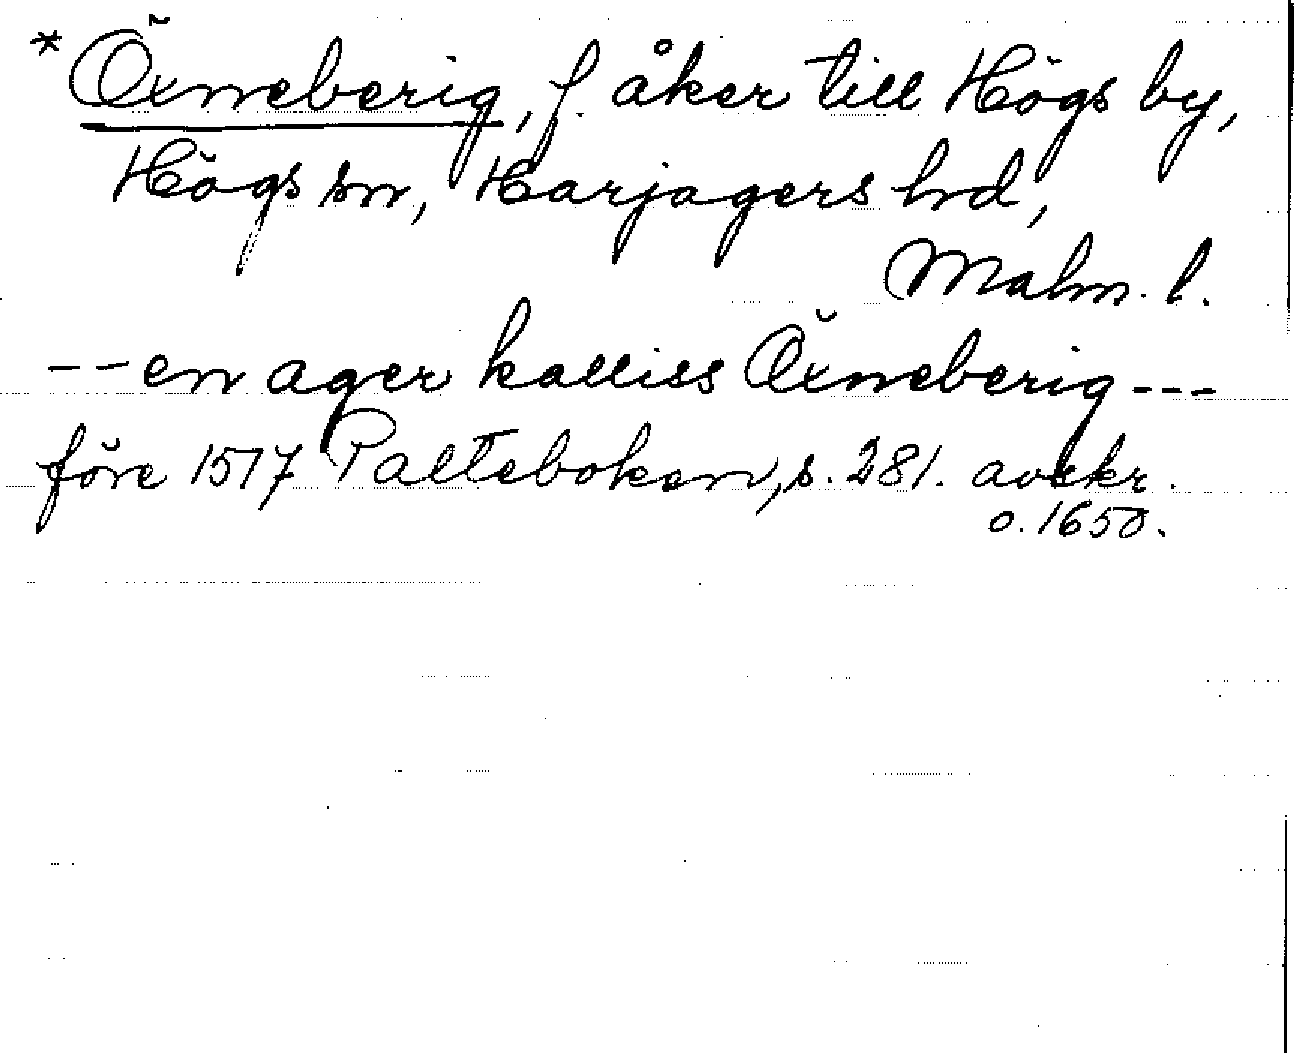 *Öxneberig, f. åker till Högs by,
Högs sn, Harjagers hd,
Malm. l.
-- en ager kalliss Öxneberig ---
före 1517 Palteboken, s. 281. avskr.
o. 1650.